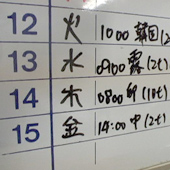 12 火 1000 韓国(
13 水 0900 露(2t)
14 木 0800 印(10t)
15 金 14:00 中(2t)